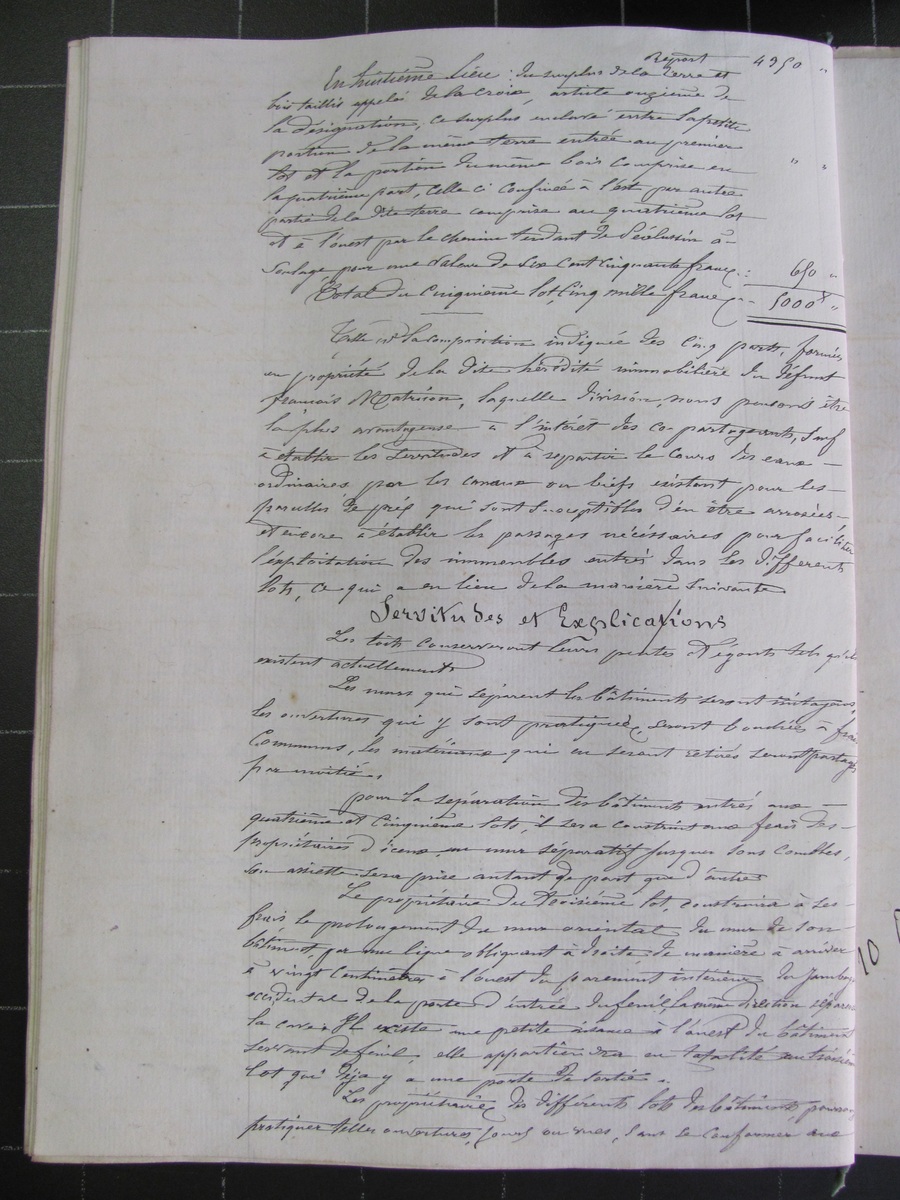 Report 4350 "
En huitième lieu : du surplus de la terre et
bois taillis appelé de la Croix, article onzième de
la désignation, ce surplus enclavé entre la petite
portion de la même terre entrée au premier
lot et la portion du même bois comprise en " "
la quatrième part, celle ci confinée à l'est par autre
partie de la dite terre comprise au quatrième lot
et à l'ouest par le chemin tendant de Pélussin à
pour une valeur de six cent cinquante francs : 650 "
Total du cinquième lot, Cinq mille francs 5000 "
Telle est la composition indiquée des cinq parts, formées
en propriété de la dite hérédité immobilière du défunt
françois Matricon, laquelle division, nous pensons être
la plus avantageuse à l'intérêt des co-partageants, sauf
à établir les servitudes et à répartir le cours des eaux
ordinaires par les canaux ou biefs existant pour les
parcelles de prés qui sont susceptibles d'en être arrosées
et encore à établir les passages nécessaires pour faciliter
l'exploitation des immeubles entrés dans les différents
lots, ce qui a eu lieu de la manière suivante
Servitudes et Explications
Les toits conserveront leurs pentes et égouts tels qu'ils
existent actuellement
Les murs qui séparent les bâtiments seront mitoyens,
les ouvertures qui y sont pratiquées, seront bouchées à frais
Communs, les matériaux qui en seront retirés seront partagés
par moitié.
pour la séparation des bâtiments entrés aux
quatrième et cinquième lots, il sera construit aux frais des
propriétaires d'iceux, un mur séparatif jusques sous combles,
son assiette sera prise autant de part que d'autre
Le propriétaire du troisième lot, construira à ses
frais le prolongement du mur oriental du mur de son
bâtiment, par une ligne obliquant à droite de manière à arriver
à vingt centimètres à l'ouest du parement intérieur du jambage
occidental de la porte d'entrée du fenil, la même direction séparera
la cave. Il existe une petite à l'ouest du bâtiment
servant de fenil, elle appartiendra en totalité au troisième
lot qui déjà y a une porte de sortie.
Les propriétaires des différents lots des bâtiments, pourront
pratiquer telles ouvertures, jours ou vues, sans se conformer aux
10